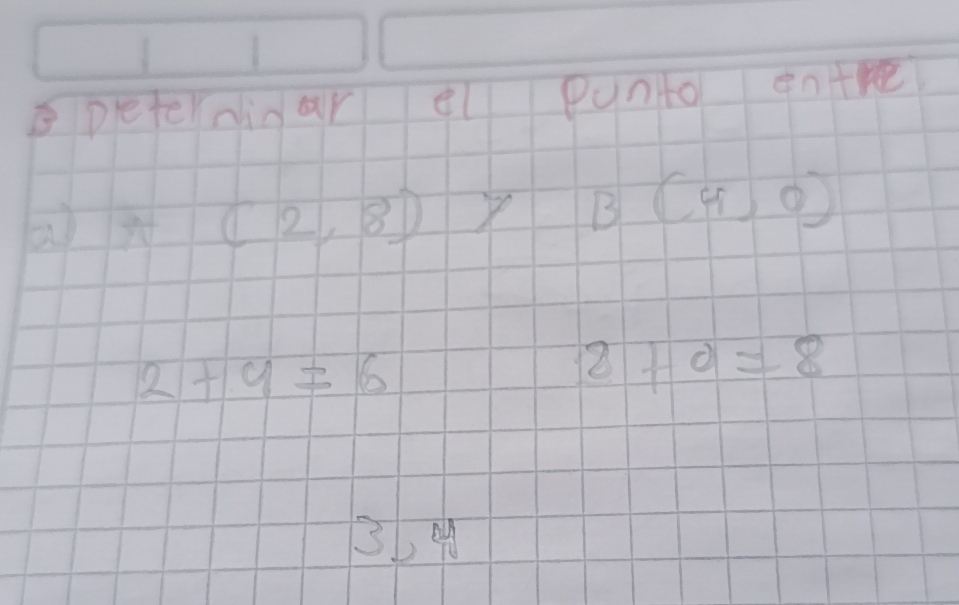 Determinar el punto entre
a) A (2, 8) y B (4, 0)
2 + 4 = 6 8 + 0 = 8
3, 4